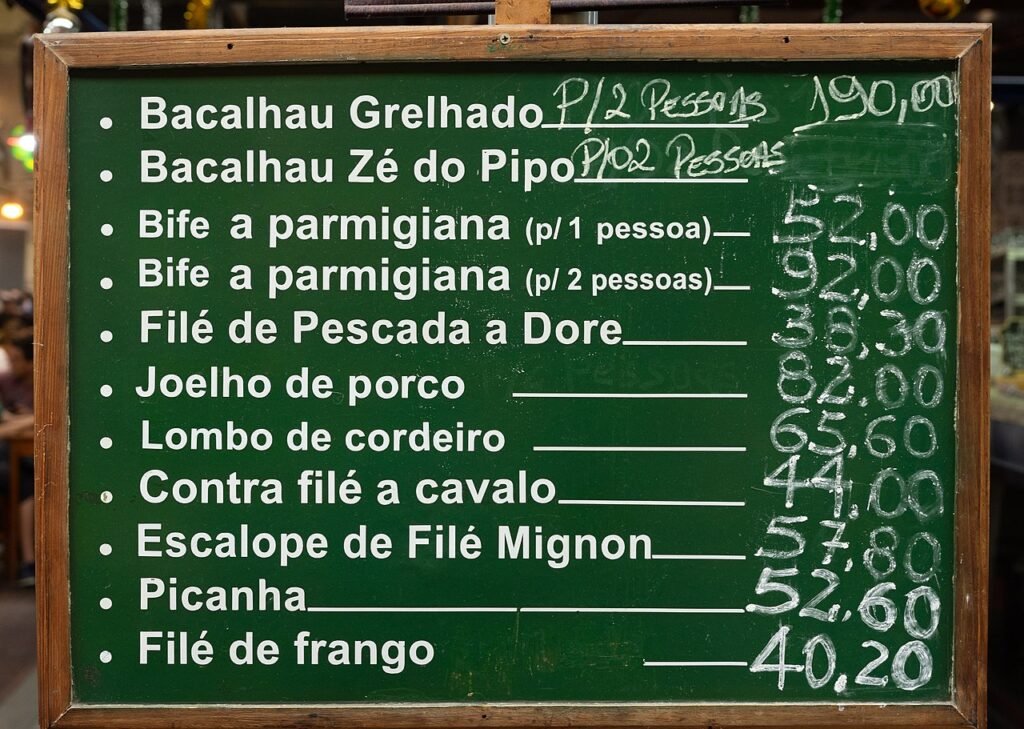 • Bacalhau Grelhado P/2 PESSOAS 190,00
• Bacalhau Zé do Pipo P/02 PESSOAS
• Bife a parmigiana (p/ 1 pessoa) 52,00
• Bife a parmigiana (p/ 2 pessoas) 92,00
• Filé de Pescada a Dore 38,30
• Joelho de porco 82,00
• Lombo de cordeiro 65,60
• Contra filé a cavalo 44,00
• Escalope de Filé Mignon 57,80
• Picanha 52,60
• Filé de frango 40,20